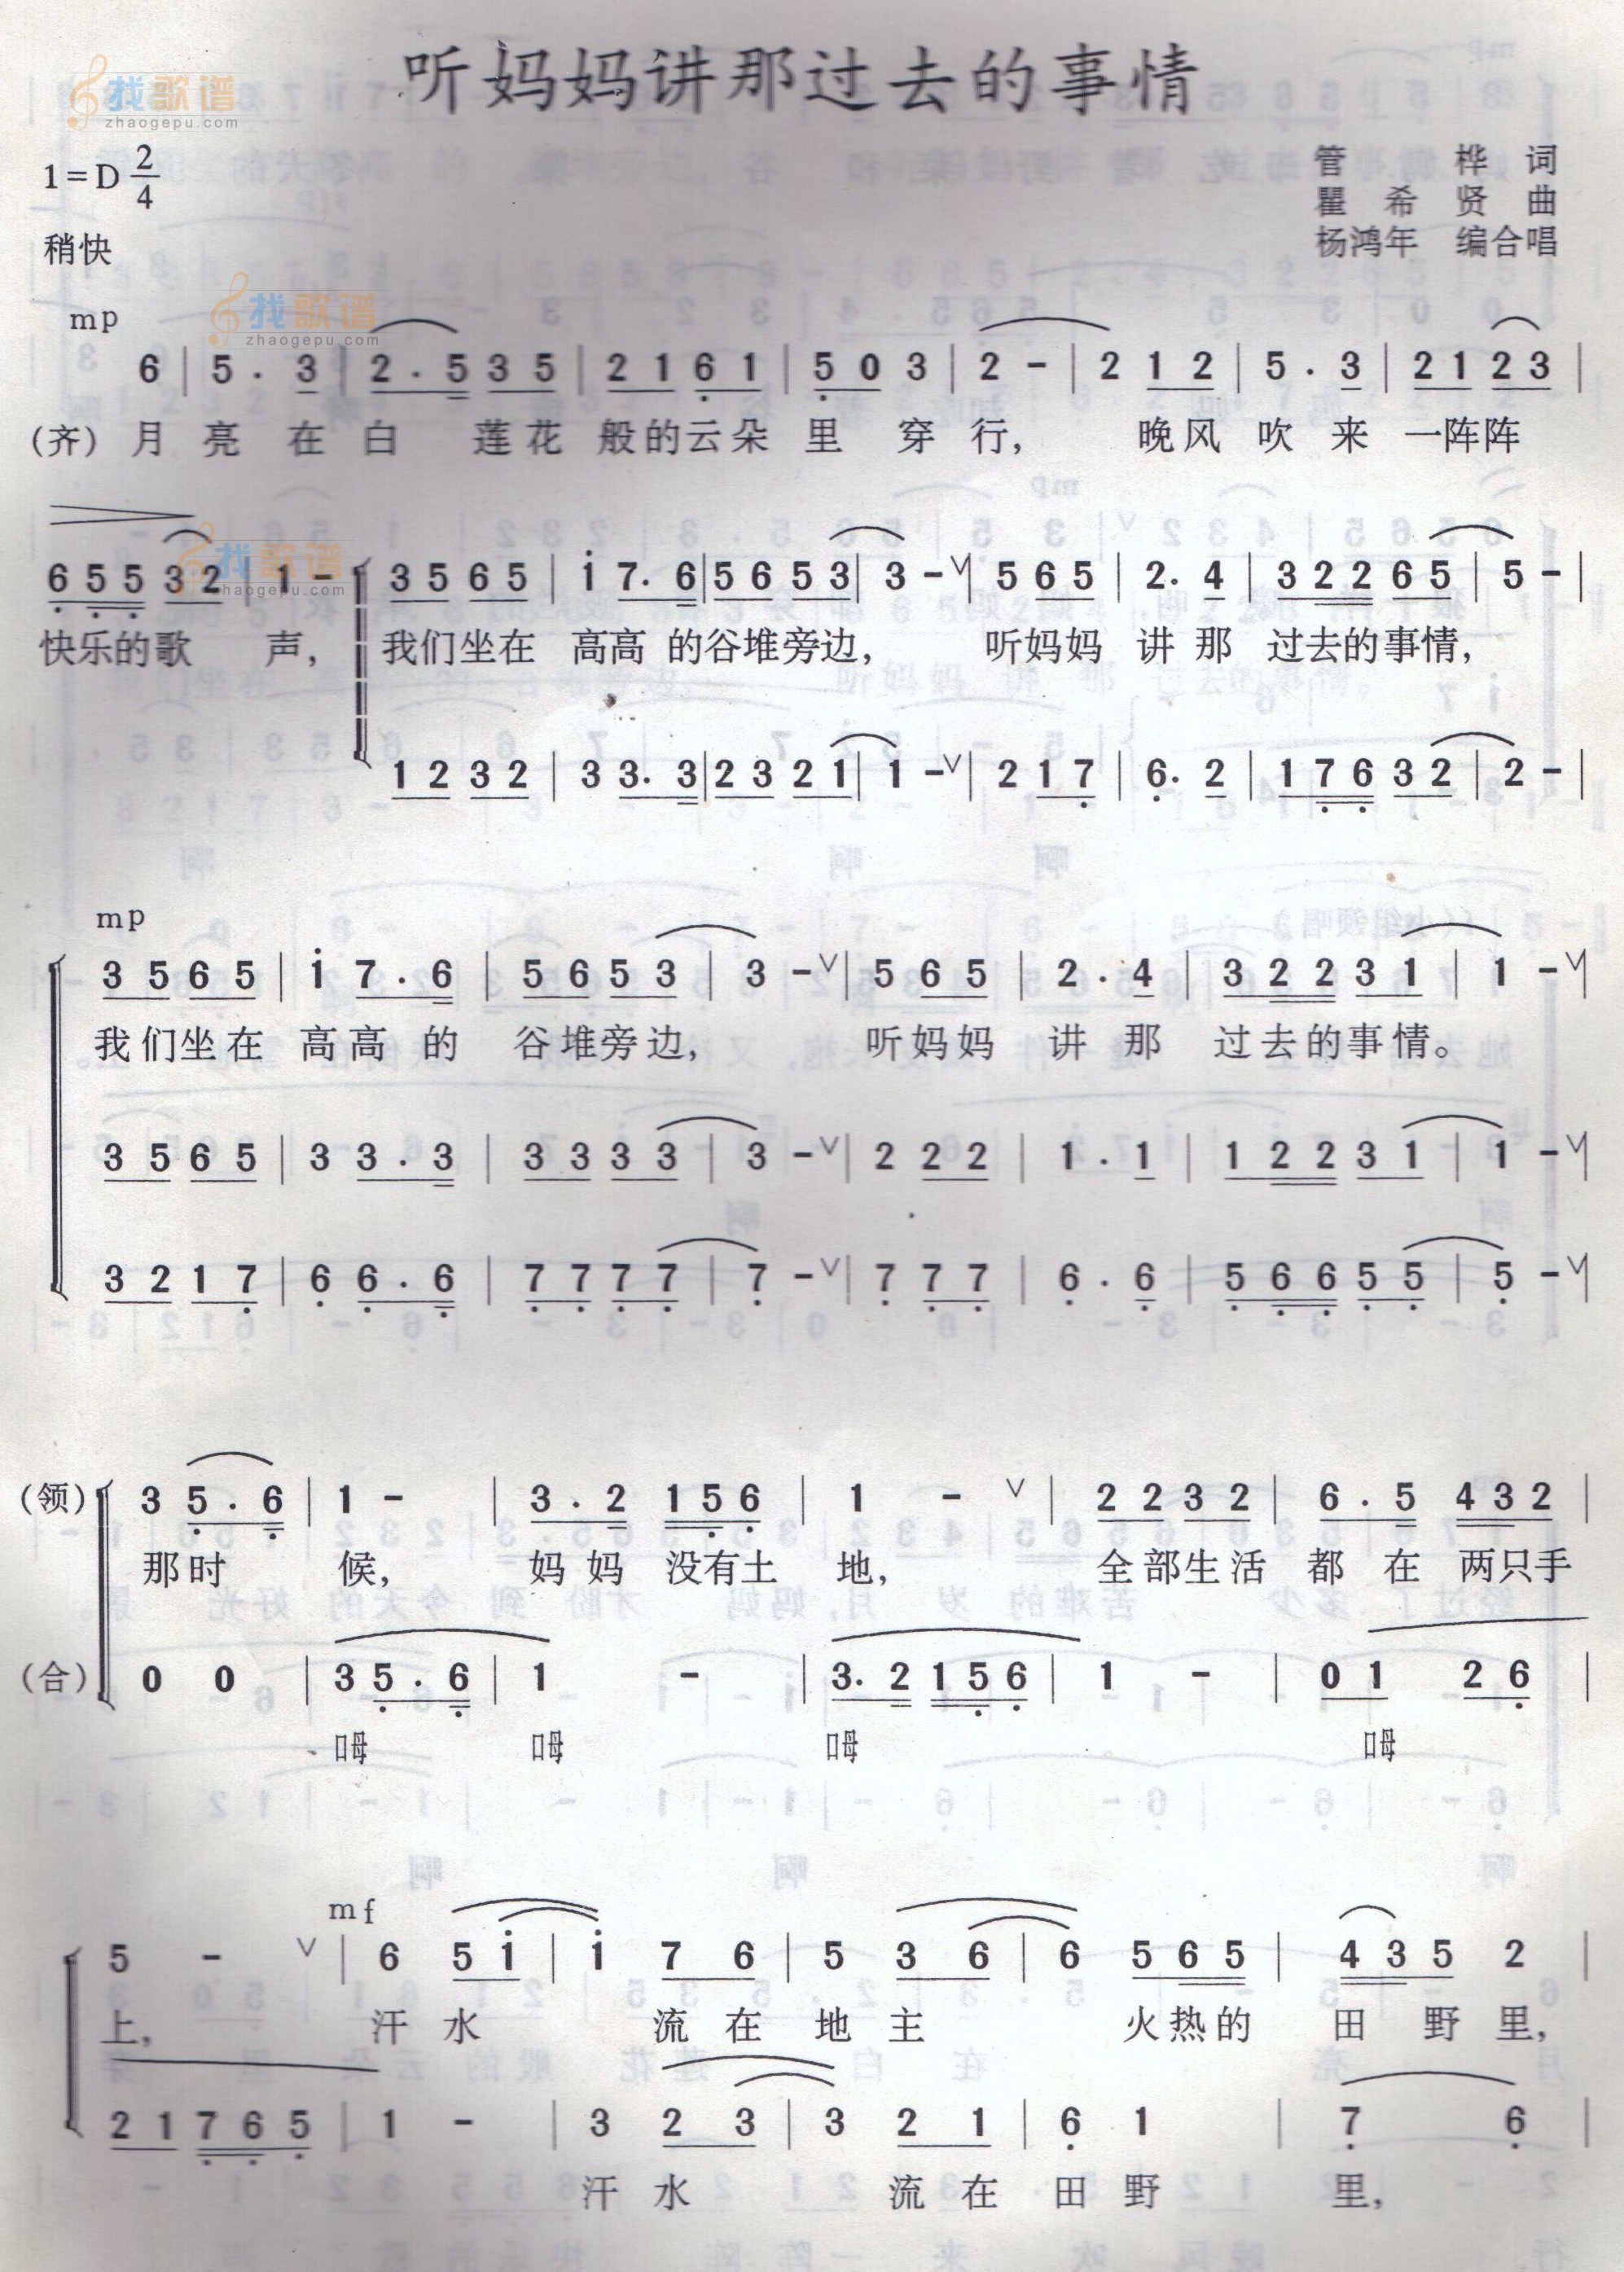 听妈妈讲那过去的事情
找歌谱
zhaogepu.com
1=D 2/4
管 桦 词
瞿 希 贤 曲
杨鸿年 编合唱
稍快
找歌谱
zhaogepu.com
mp
6 | 5 . 3 | 2 . 5 3 5 | 2 1 6 1 | 5 0 3 | 2 - | 2 1 2 | 5 . 3 | 2 1 2 3 |
(齐) 月 亮 在 白 莲花 般的云朵 里 穿 行, 晚风 吹 来 一阵阵
找歌谱
zhaogepu.com
6 5 5 3 2 | 1 - | 3 5 6 5 | i 7. 6 | 5 6 5 3 | 3 - ∨ | 5 6 5 | 2. 4 | 3 2 2 6 5 | 5 - |
快乐的歌 声, 我们坐在 高高 的谷堆旁边, 听妈妈 讲 那 过去的事情,
1 2 3 2 | 3 3. 3 | 2 3 2 1 | 1 - ∨ | 2 1 7 | 6. 2 | 1 7 6 3 2 | 2 - |
mp
3 5 6 5 | i 7 . 6 | 5 6 5 3 | 3 - ∨ | 5 6 5 | 2 . 4 | 3 2 2 3 1 | 1 - ∨ |
我们坐在 高高 的 谷堆旁边, 听妈妈 讲 那 过去的事情。
3 5 6 5 | 3 3 . 3 | 3 3 3 3 | 3 - ∨ | 2 2 2 | 1 . 1 | 1 2 2 3 1 | 1 - ∨ |
3 2 1 7 | 6 6 . 6 | 7 7 7 7 | 7 - ∨ | 7 7 7 | 6 . 6 | 5 6 6 5 5 | 5 - ∨ |
(领) 3 5 . 6 | 1 - | 3 . 2 1 5 6 | 1 - ∨ | 2 2 3 2 | 6 . 5 4 3 2 |
那时 候, 妈 妈 没有土 地, 全部生活 都 在 两只手
(合) 0 0 | 3 5 . 6 | 1 - | 3. 2 1 5 6 | 1 - | 0 1 2 6 |
呣 呣 呣 呣
mf
5 - ∨ | 6 5 i | i 7 6 | 5 3 6 | 6 5 6 5 | 4 3 5 2 |
上, 汗 水 流 在 地 主 火热的 田 野 里,
2 1 7 6 5 | 1 - | 3 2 3 | 3 2 1 | 6 1 | 7 6 |
汗 水 流 在 田 野 里,